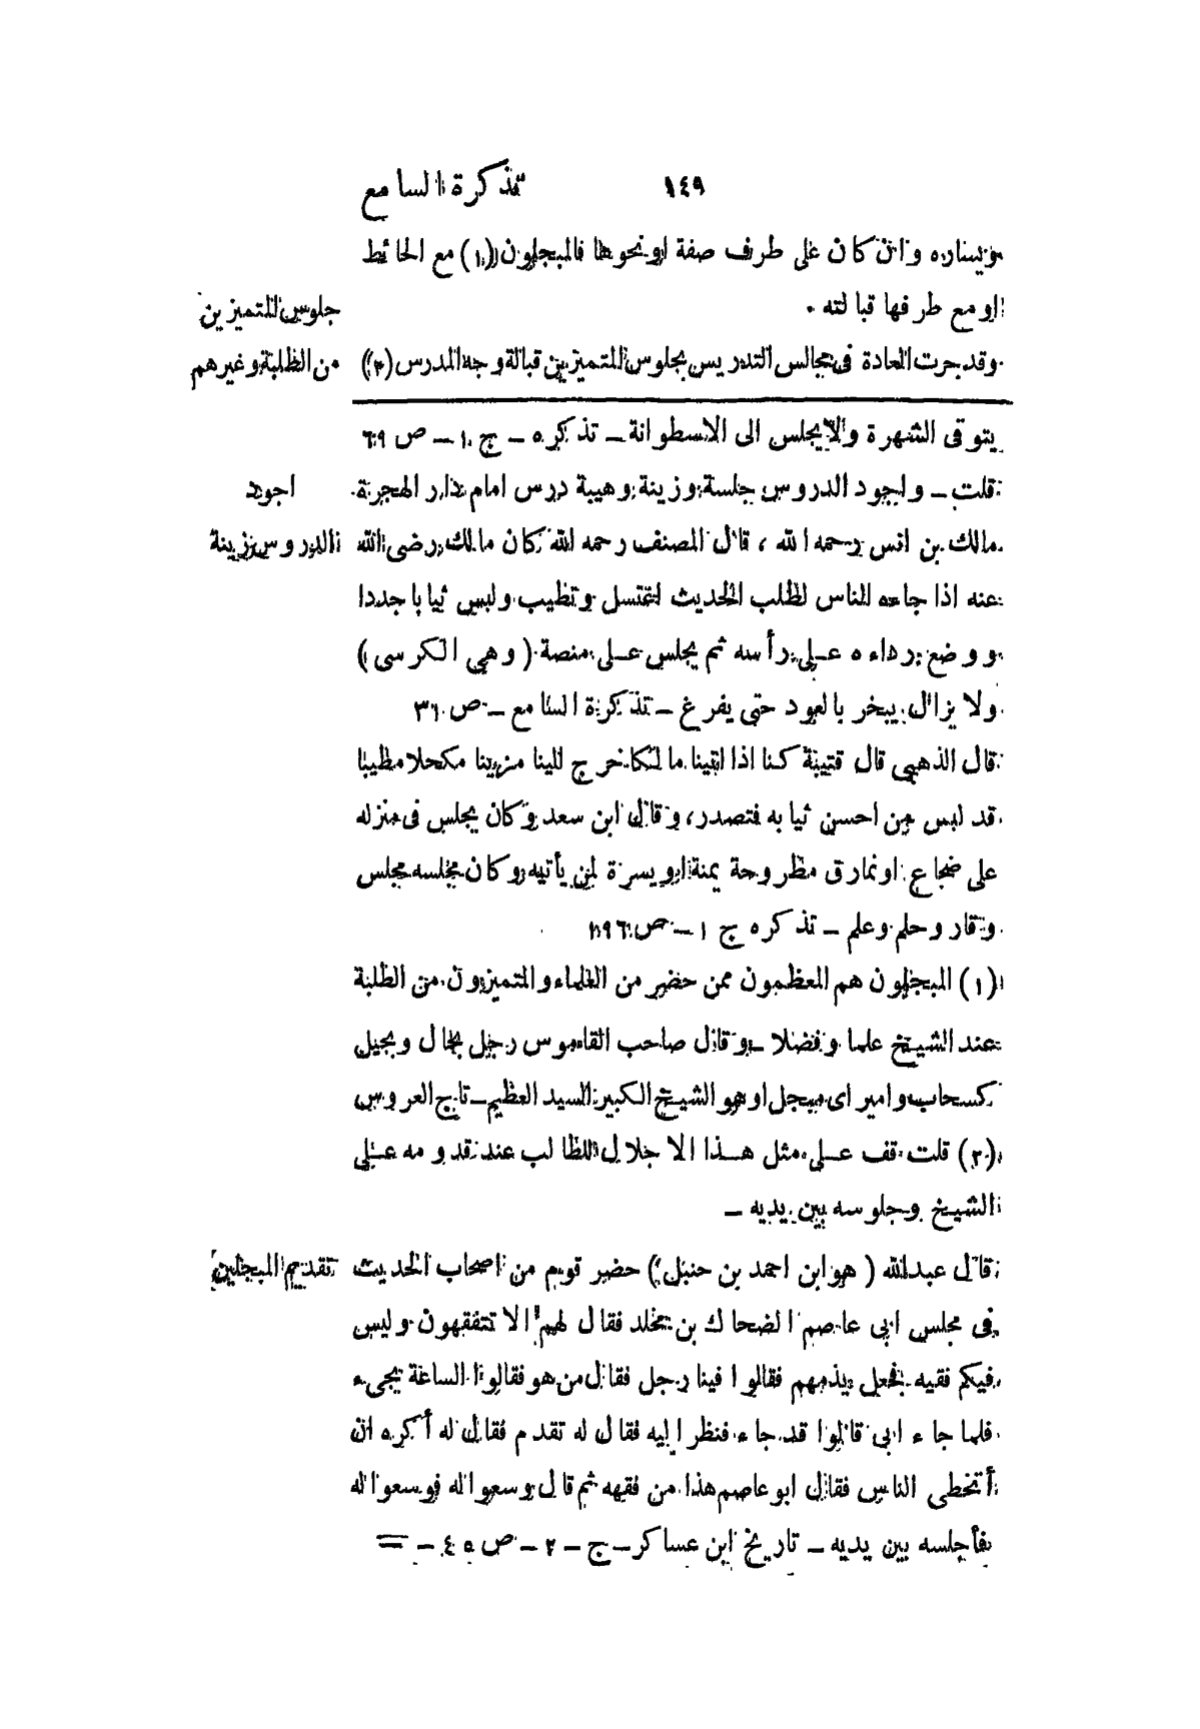 ١٤٩ تذكرة السامع
ويساره وان كان على طرف صفة او نحوها فالمبجلون (١) مع الحائط
او مع طرفها قبالته .
جلوس المتميزين
وقد جرت العادة فى مجالس التدريس بجلوس المتميزين قبالة وجه المدرس (٢)
من الطلبة وغيرهم
يتوقى الشهرة ولا يجلس الى الاسطوانة ـ تذكره ـ ج ١ ـ ص ٦٩
قلت ـ واجود الدروس جلسة وزينة وهيبة درس امام دار الهجرة
اجود
مالك بن انس رحمه الله ، قال المصنف رحمه الله كان مالك رضى الله
الدروس زينة
عنه اذا جاءه الناس لطلب الحديث اغتسل وتطيب ولبس ثيابا جددا
ووضع رداءه على رأسه ثم يجلس على منصة (وهى الكرسى)
ولا يزال يبخر بالعود حتى يفرغ ـ تذكرة السامع ـ ص ٣١
قال الذهبى قال قتيبة كنا اذا اتينا مالكا خرج الينا مزينا مكحلا مطيبا
قد لبس من احسن ثيابه فتصدر، وقال ابن سعد وكان يجلس فى منزله
على ضجاع او نمارق مطروحة يمنة او يسرة لمن يأتيه وكان مجلسه مجلس
وقار وحلم وعلم ـ تذكره ج ١ ـ ص ١٩٦
(١) المبجلون هم المعظمون ممن حضر من العلماء والمتميزون من الطلبة
عند الشيخ علما وفضلا ـ وقال صاحب القاموس رجل بجال وبجيل
كسحاب وامير اى مبجل او هو الشيخ الكبير السيد العظيم ـ تاج العروس
(٢) قلت قف على مثل هذا الاجلال للطالب عند قدومه على
الشيخ وجلوسه بين يديه ـ
قال عبدالله (هو ابن احمد بن حنبل) حضر قوم من اصحاب الحديث
تقديم المبجلين
فى مجلس ابى عاصم الضحاك بن مخلد فقال لهم الا تتفقهون وليس
فيكم فقيه فجعل يذمهم فقالوا فينا رجل فقال من هو فقالوا الساعة يجىء
فلما جاء ابى قالوا قد جاء فنظر اليه فقال له تقدم فقال له أكره ان
أتخطى الناس فقال ابو عاصم هذا من فقهه ثم قال وسعوا له فوسعوا له
فأجلسه بين يديه ـ تاريخ ابن عساكر ـ ج ـ ٢ ـ ص ٤٥ ـ =